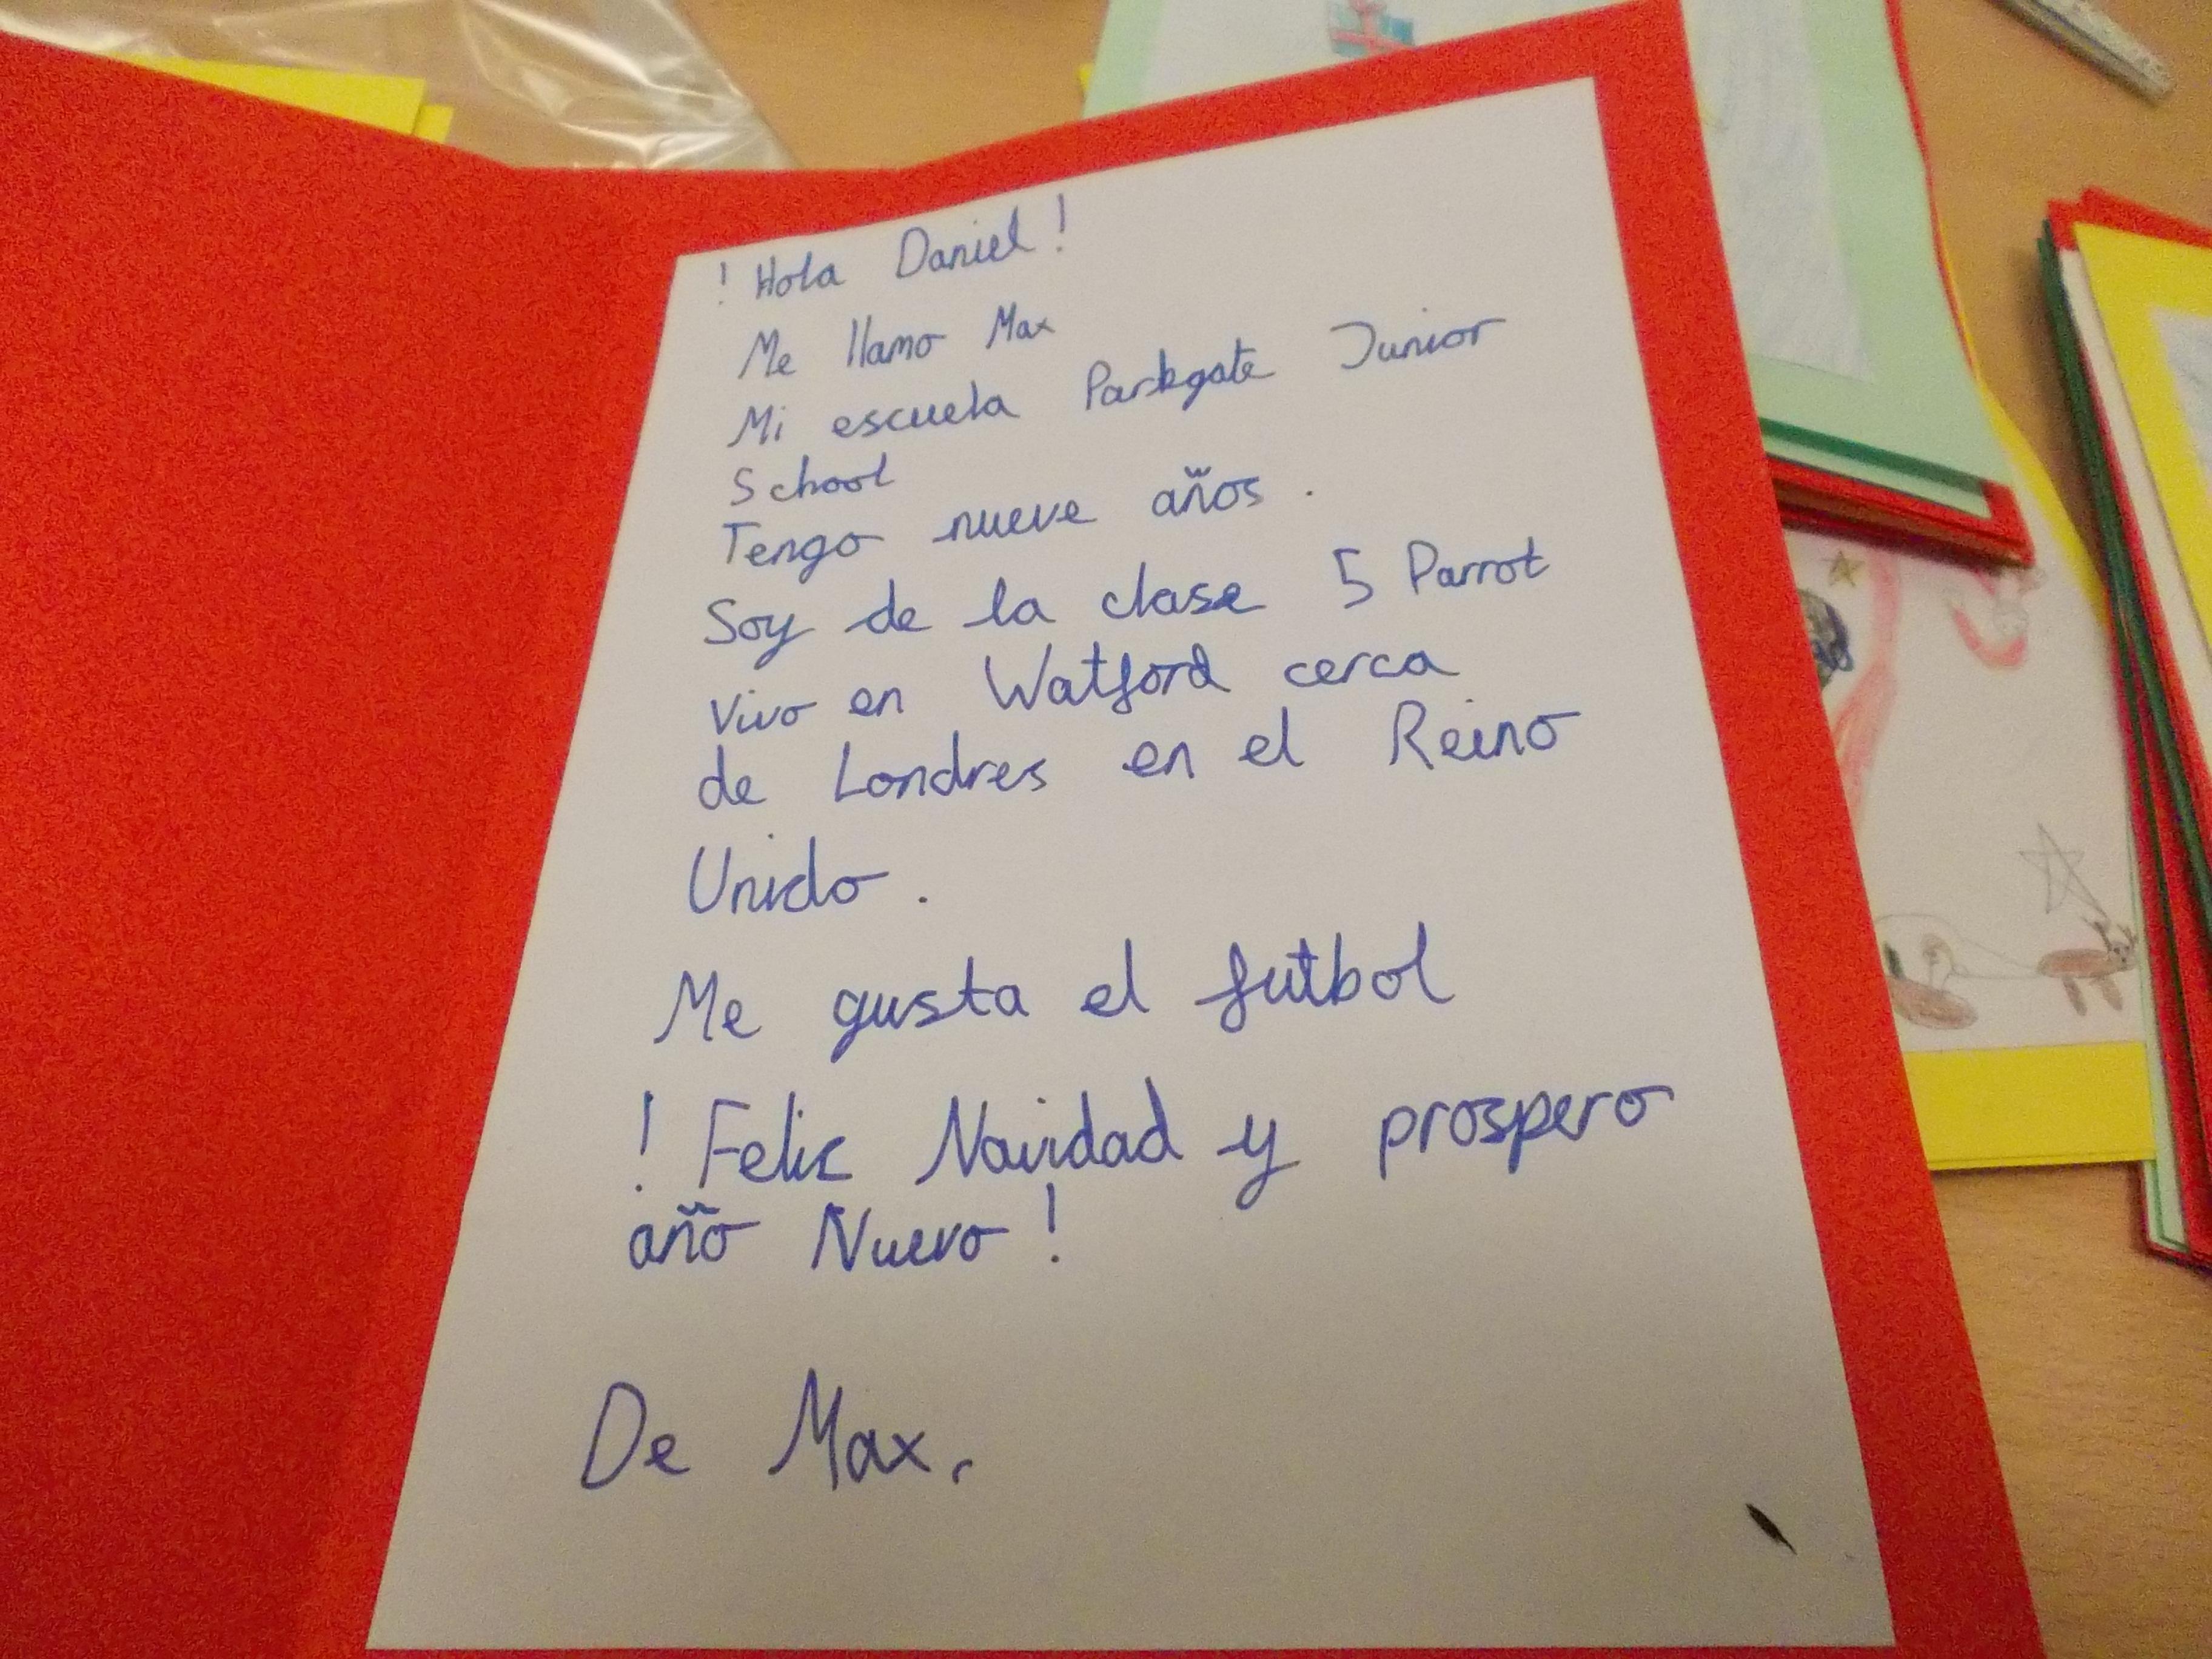 ! Hola Daniel!
Me llamo Max
Mi escuela Parkgate Junior
School
Tengo nueve años.
Soy de la clase 5 Parrot
Vivo en Watford cerca
de Londres en el Reino
Unido.
Me gusta el futbol
! Feliz Navidad y prospero
año Nuevo!
De Max.